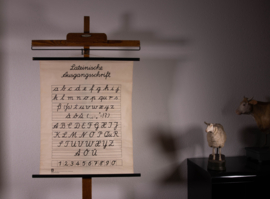 Lateinische
Ausgangsschrift
a b c d e f g h i j
k l m n o p q u r s
ß t u v w x y z
ä ö ü
A B C D E F G H I J
K L M N O P Q u R
S T U V W X Y Z
Ä Ö Ü
1 2 3 4 5 6 7 8 9 0